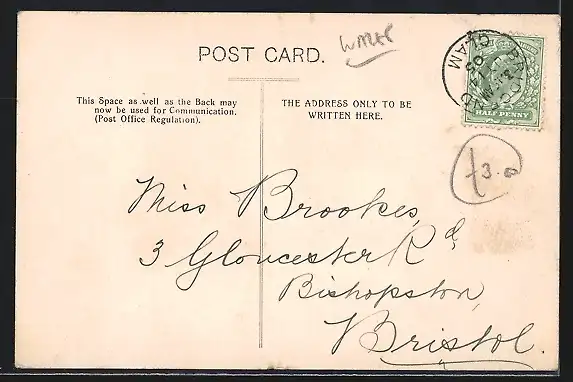 POST CARD.
This Space as well as the Back may
now be used for Communication.
(Post Office Regulation).
THE ADDRESS ONLY TO BE
WRITTEN HERE.
GLAM
HALF PENNY
£3.00
Miss Brookes,
3 Gloucester Rd,
Bishopston,
Bristol.